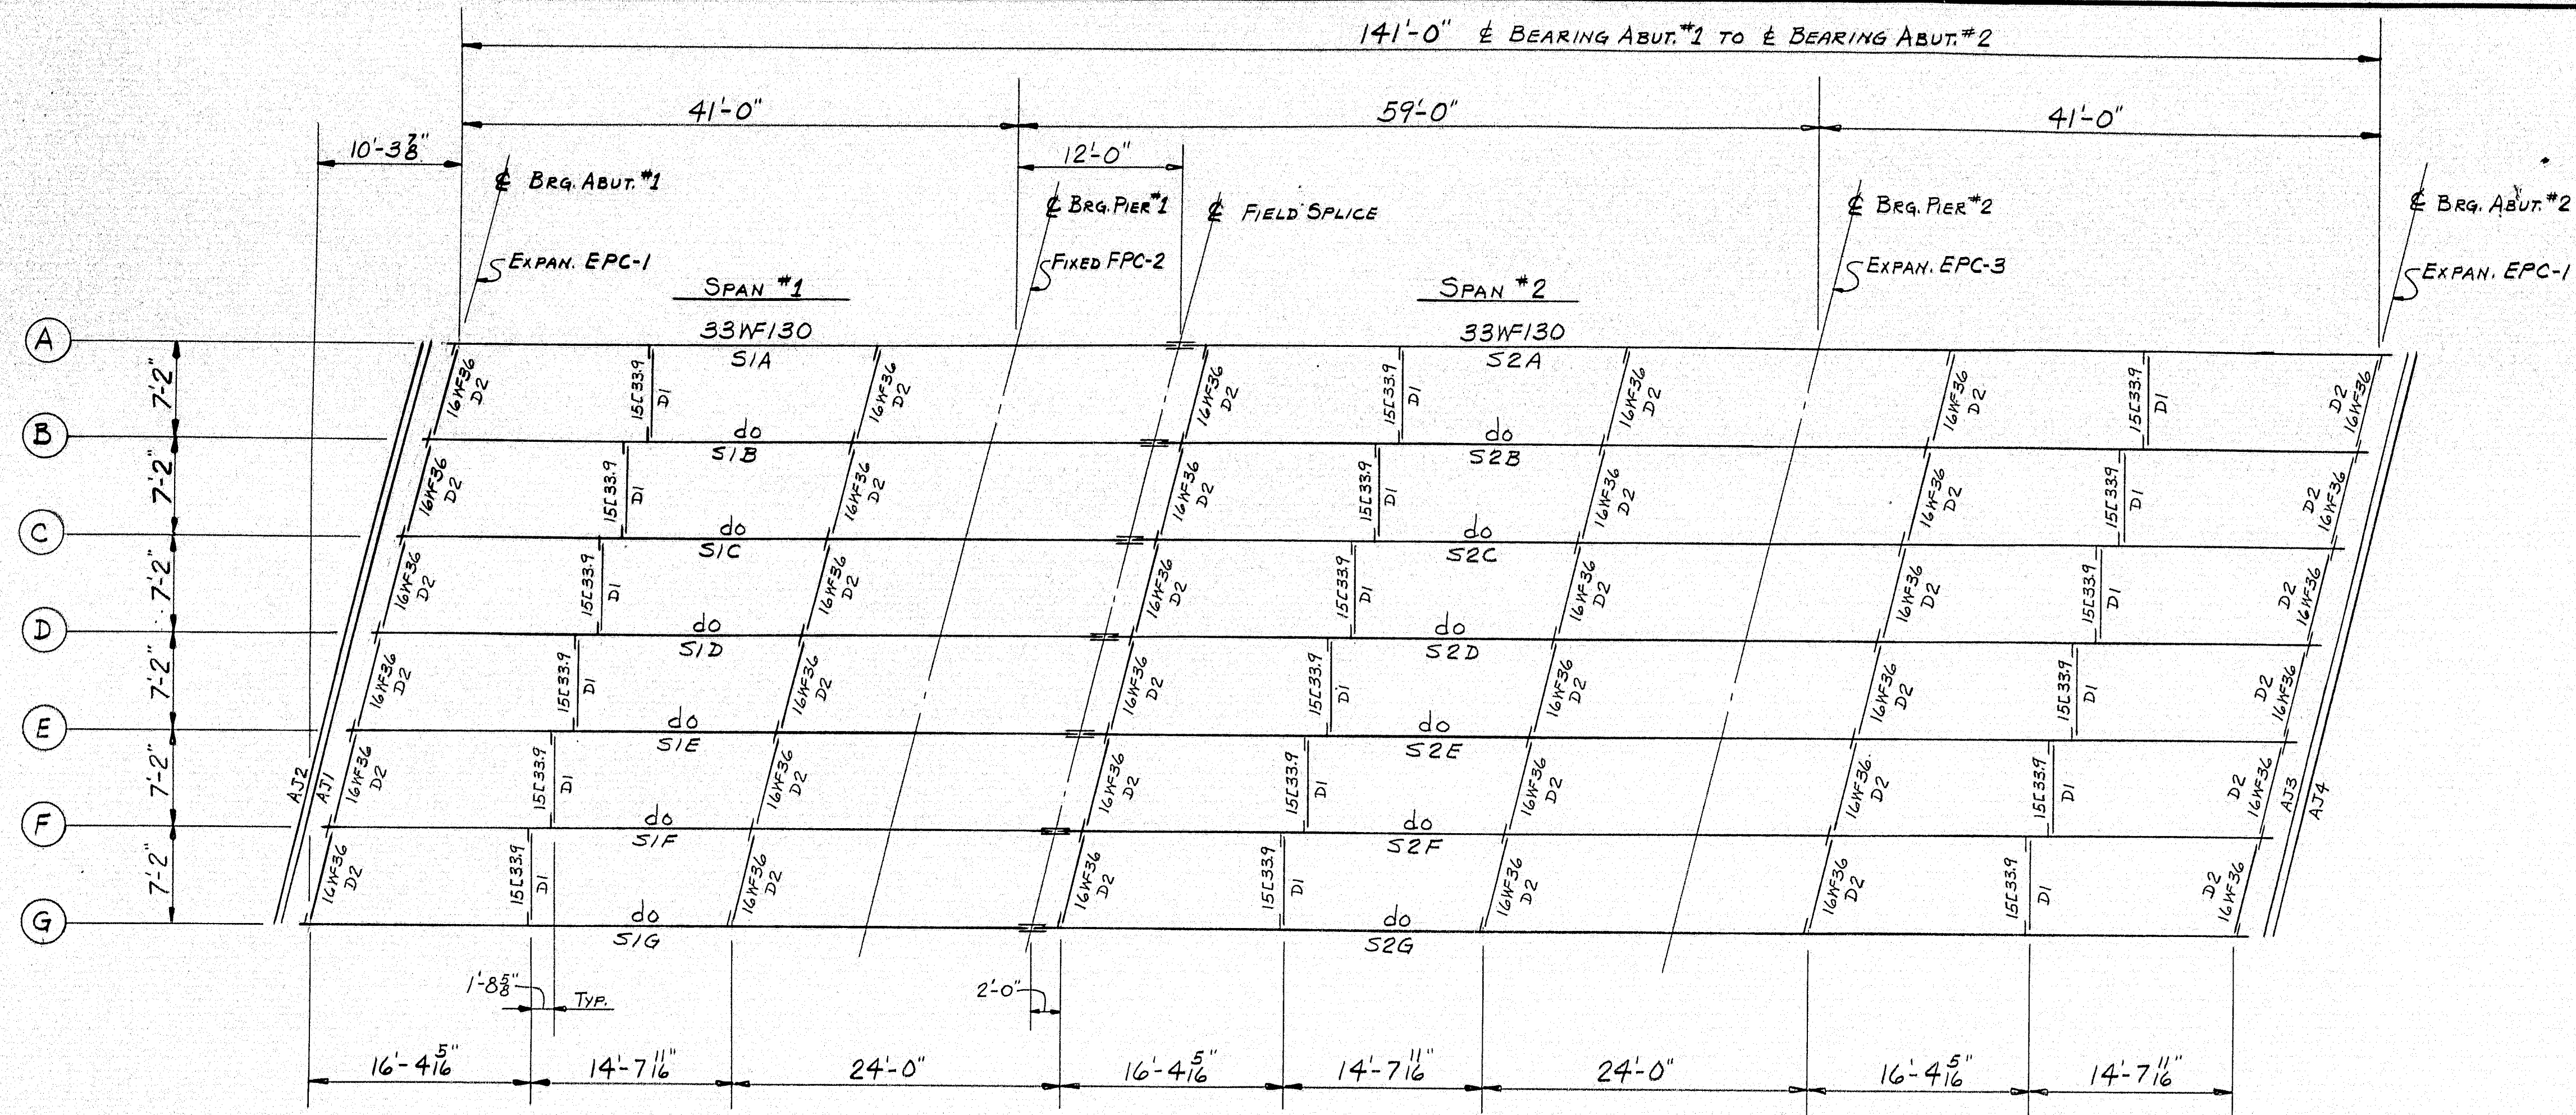 141'-0" ⅊ BEARING ABUT.#1 TO ⅊ BEARING ABUT.#2
41'-0" 59'-0" 41'-0"
10'-3 7/8" 12'-0"
℄ BRG. ABUT.#1
℄ BRG. PIER#1
℄ FIELD SPLICE
℄ BRG. PIER#2
℄ BRG. ABUT.#2
EXPAN. EPC-1
FIXED FPC-2
EXPAN. EPC-3
EXPAN. EPC-1
SPAN #1
SPAN #2
33WF130
33WF130
A
S1A
S2A
7'-2"
16WF36 D2 15[33.9 D1 16WF36 D2 16WF36 D2 15[33.9 D1 16WF36 D2 16WF36 D2 15[33.9 D1 D2 16WF36
B
do
S1B
do
S2B
7'-2"
16WF36 D2 15[33.9 D1 16WF36 D2 16WF36 D2 15[33.9 D1 16WF36 D2 16WF36 D2 15[33.9 D1 D2 16WF36
C
do
S1C
do
S2C
7'-2"
16WF36 D2 15[33.9 D1 16WF36 D2 16WF36 D2 15[33.9 D1 16WF36 D2 16WF36 D2 15[33.9 D1 D2 16WF36
D
do
S1D
do
S2D
7'-2"
16WF36 D2 15[33.9 D1 16WF36 D2 16WF36 D2 15[33.9 D1 16WF36 D2 16WF36 D2 15[33.9 D1 D2 16WF36
E
do
S1E
do
S2E
7'-2"
AJ2 AJ1 16WF36 D2 15[33.9 D1 16WF36 D2 16WF36 D2 15[33.9 D1 16WF36 D2 16WF36 D2 15[33.9 D1 D2 16WF36 AJ3 AJ4
F
do
S1F
do
S2F
7'-2"
16WF36 D2 15[33.9 D1 16WF36 D2 16WF36 D2 15[33.9 D1 16WF36 D2 16WF36 D2 15[33.9 D1 D2 16WF36
G
do
S1G
do
S2G
1'-8 5/8" TYP.
2'-0"
16'-4 5/16" 14'-7 11/16" 24'-0" 16'-4 5/16" 14'-7 11/16" 24'-0" 16'-4 5/16" 14'-7 11/16"